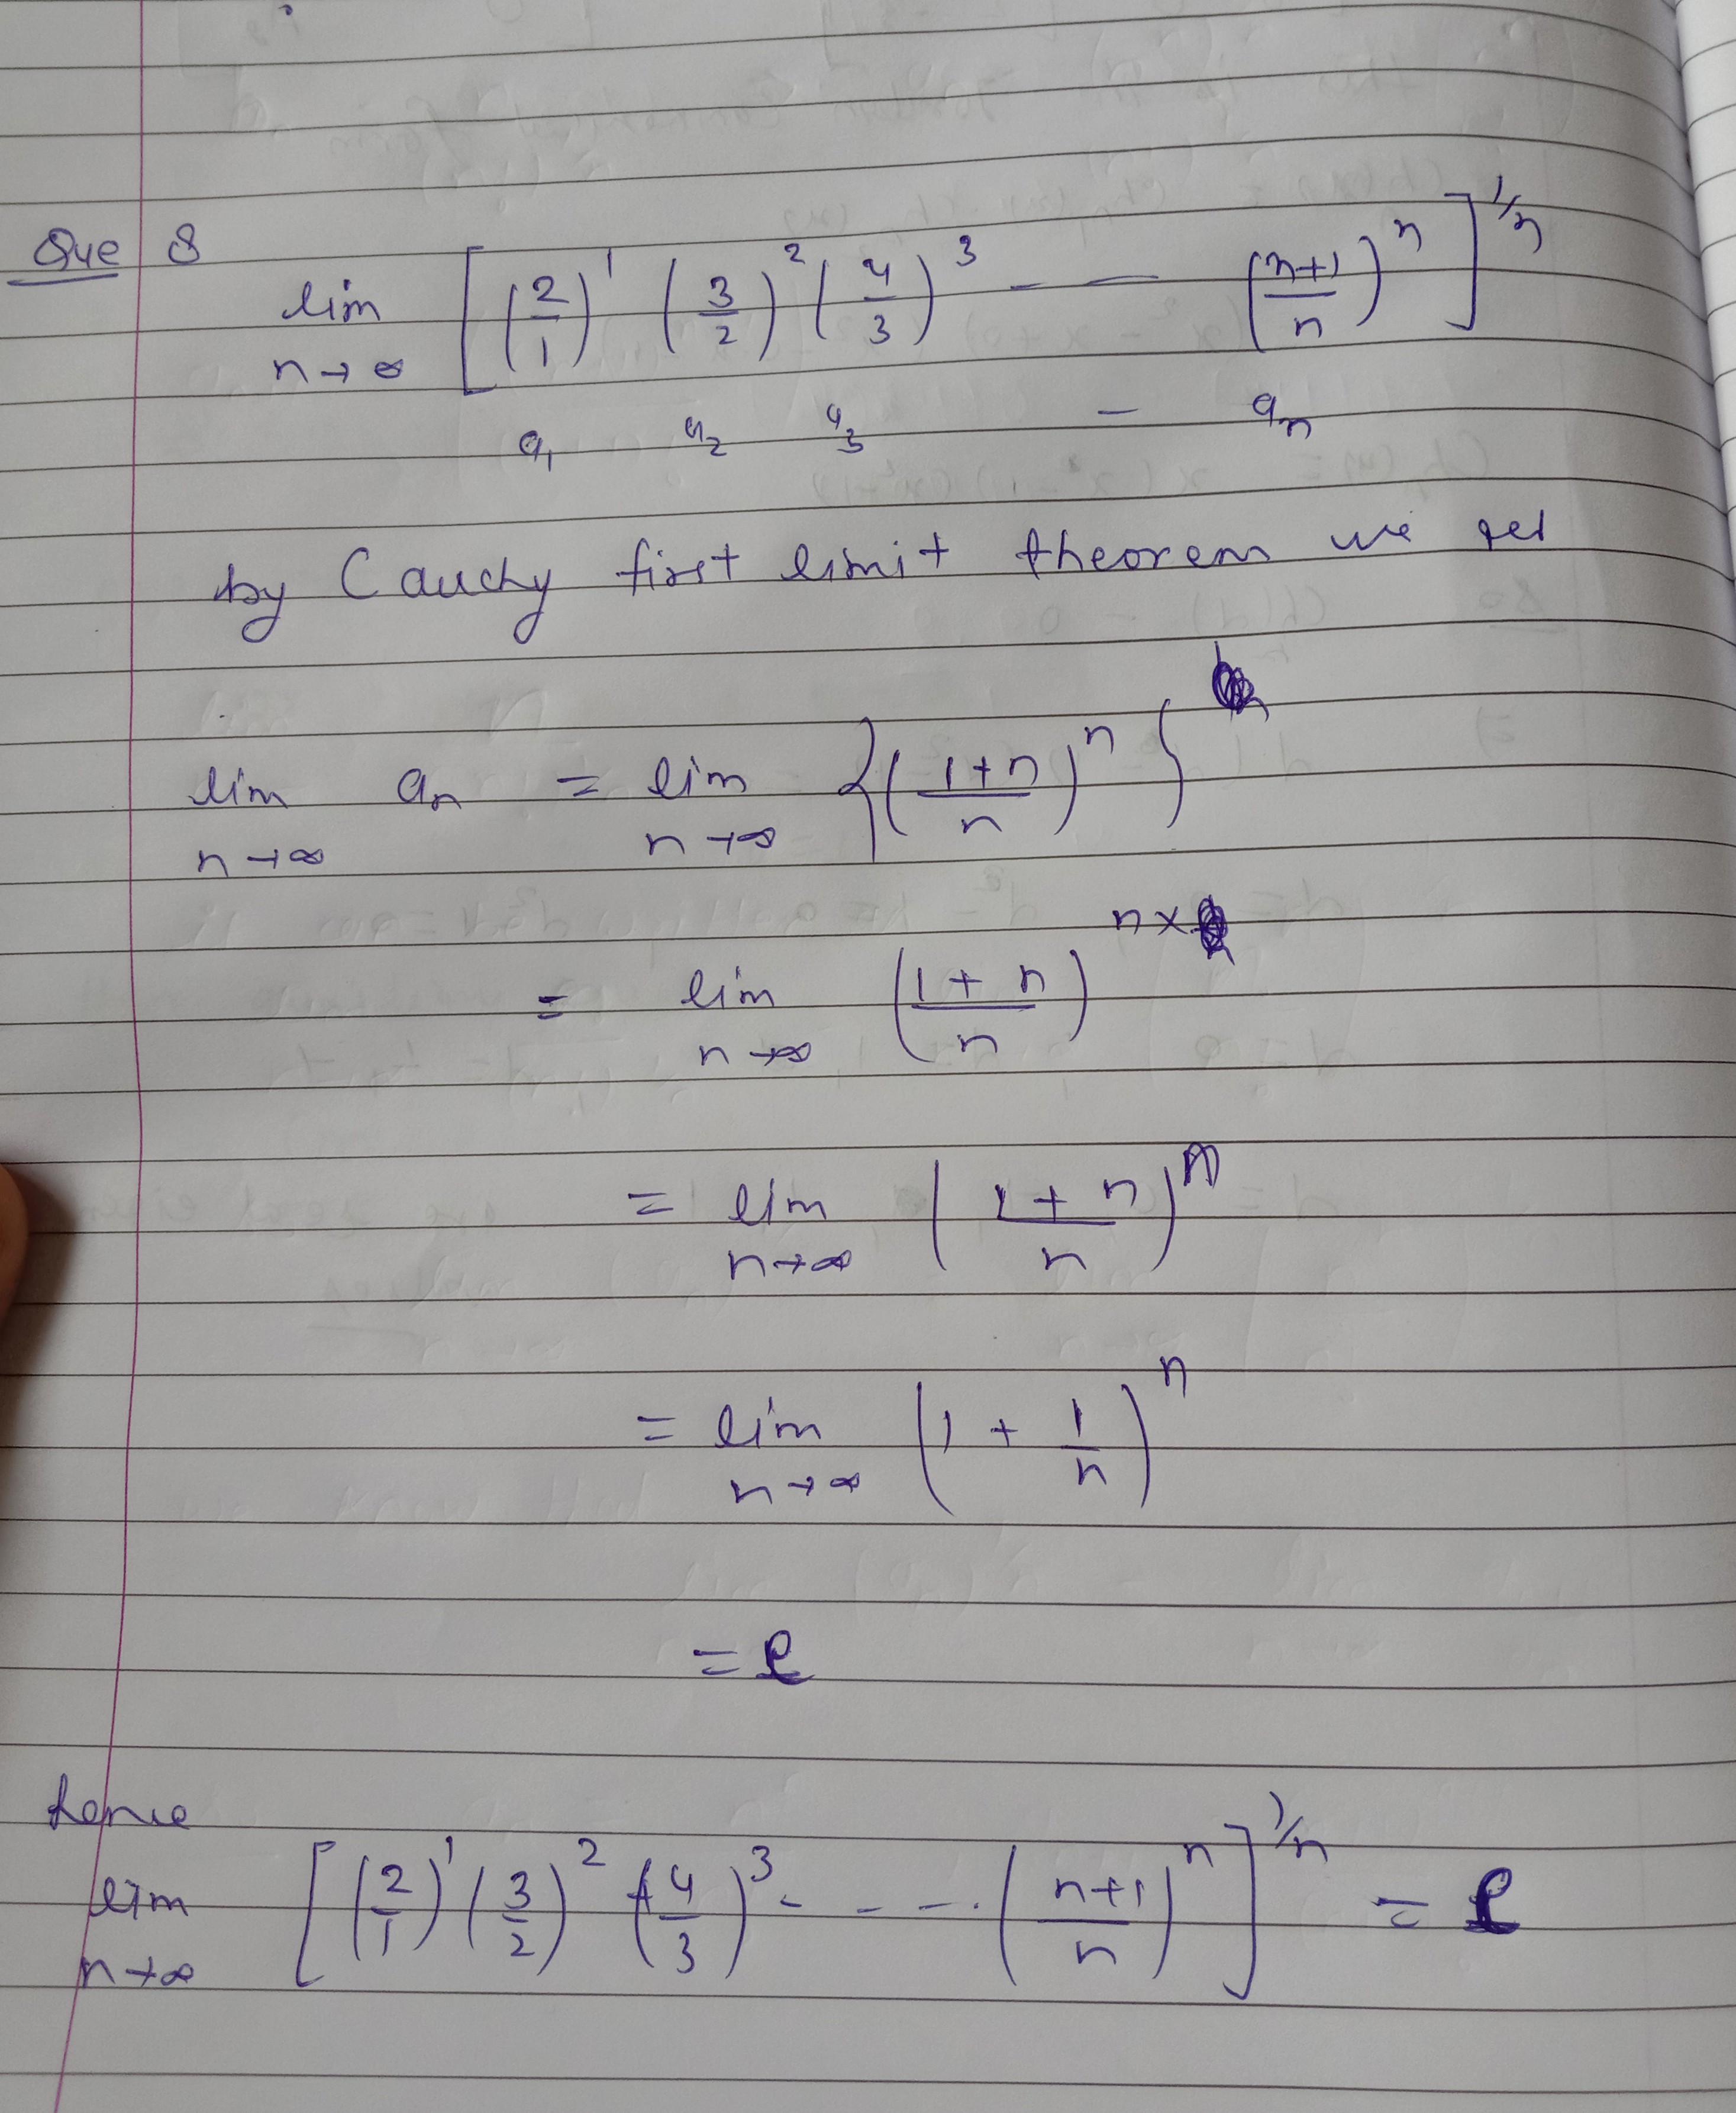 Que 8
lim n→∞ [(2/1)^1 (3/2)^2 (4/3)^3 - — ((n+1)/n)^n]^1/n
a1 a2 a3 – an
by Cauchy first limit theorem we get
lim n→∞ an = lim n→∞ {((1+n)/n)^n}
= lim n→∞ ((1+n)/n)^n×
= lim n→∞ ((1+n)/n)^n
= lim n→∞ (1 + 1/n)^n
= e
hence
lim n→∞ [(2/1)^1 (3/2)^2 (4/3)^3 - - - - . ((n+1)/n)^n]^1/n = e